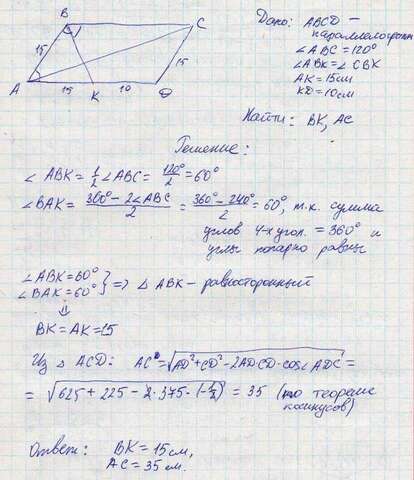 B
C
15
15
A
15
K
10
D
Дано: ABCD —
параллелограмм
∠ABC = 120°
∠ABK = ∠CBK
AK = 15 см
KD = 10 см
Найти: BK, AC
Решение:
∠ABK = 1/2 ∠ABC = 120°/2 = 60°
∠BAK = (360° - 2∠ABC)/2 = (360° - 240°)/2 = 60°, т.к. сумма
углов 4-х угол. = 360° и
углы попарно равны
∠ABK = 60°
∠BAK = 60° } ⇒ △ ABK - равносторонний
⇓
BK = AK = 15
Из △ ACD: AC = √(AD² + CD² - 2AD·CD·cos∠ADC) =
= √(625 + 225 - 2·375·(-1/2)) = 35 (по теореме
косинусов)
Ответ: BK = 15 см,
AC = 35 см.